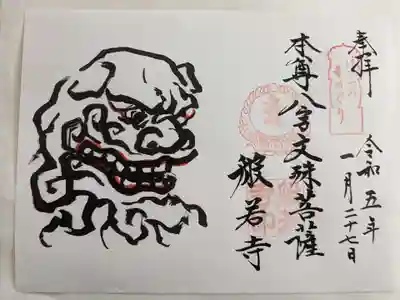 奉拝
令和五年
一月二十七日
本尊八字文殊菩薩
般若寺